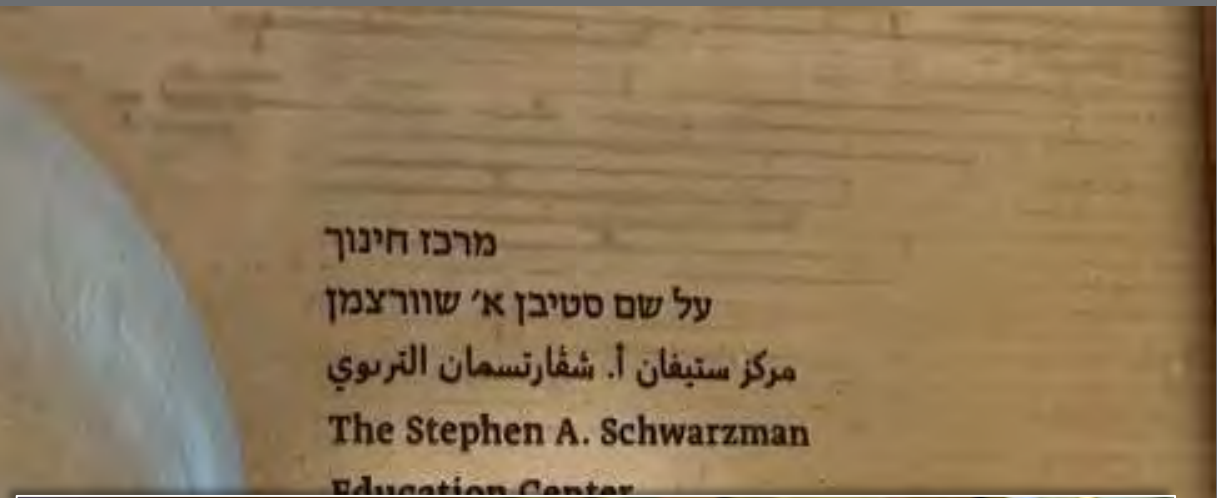 מרכז חינוך
על שם סטיבן א׳ שוורצמן
مركز ستيفان أ. شڤارتسمان التربوي
The Stephen A. Schwarzman
Education Center